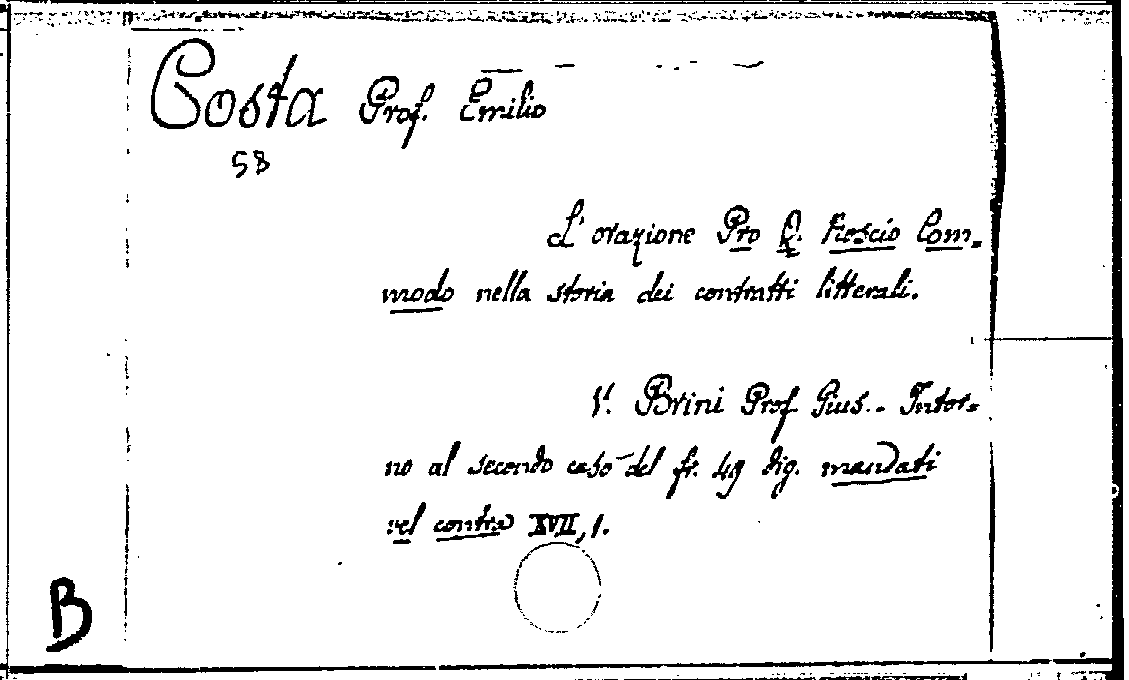 Costa Prof. Emilio
58
L'orazione Pro Q. Roscio Com-
modo nella storia dei contratti litterali.
V. Brini Prof Gius.. Intor-
no al secondo caso del fr. 49 dig. mandati
vel contra XVII, 1.
B